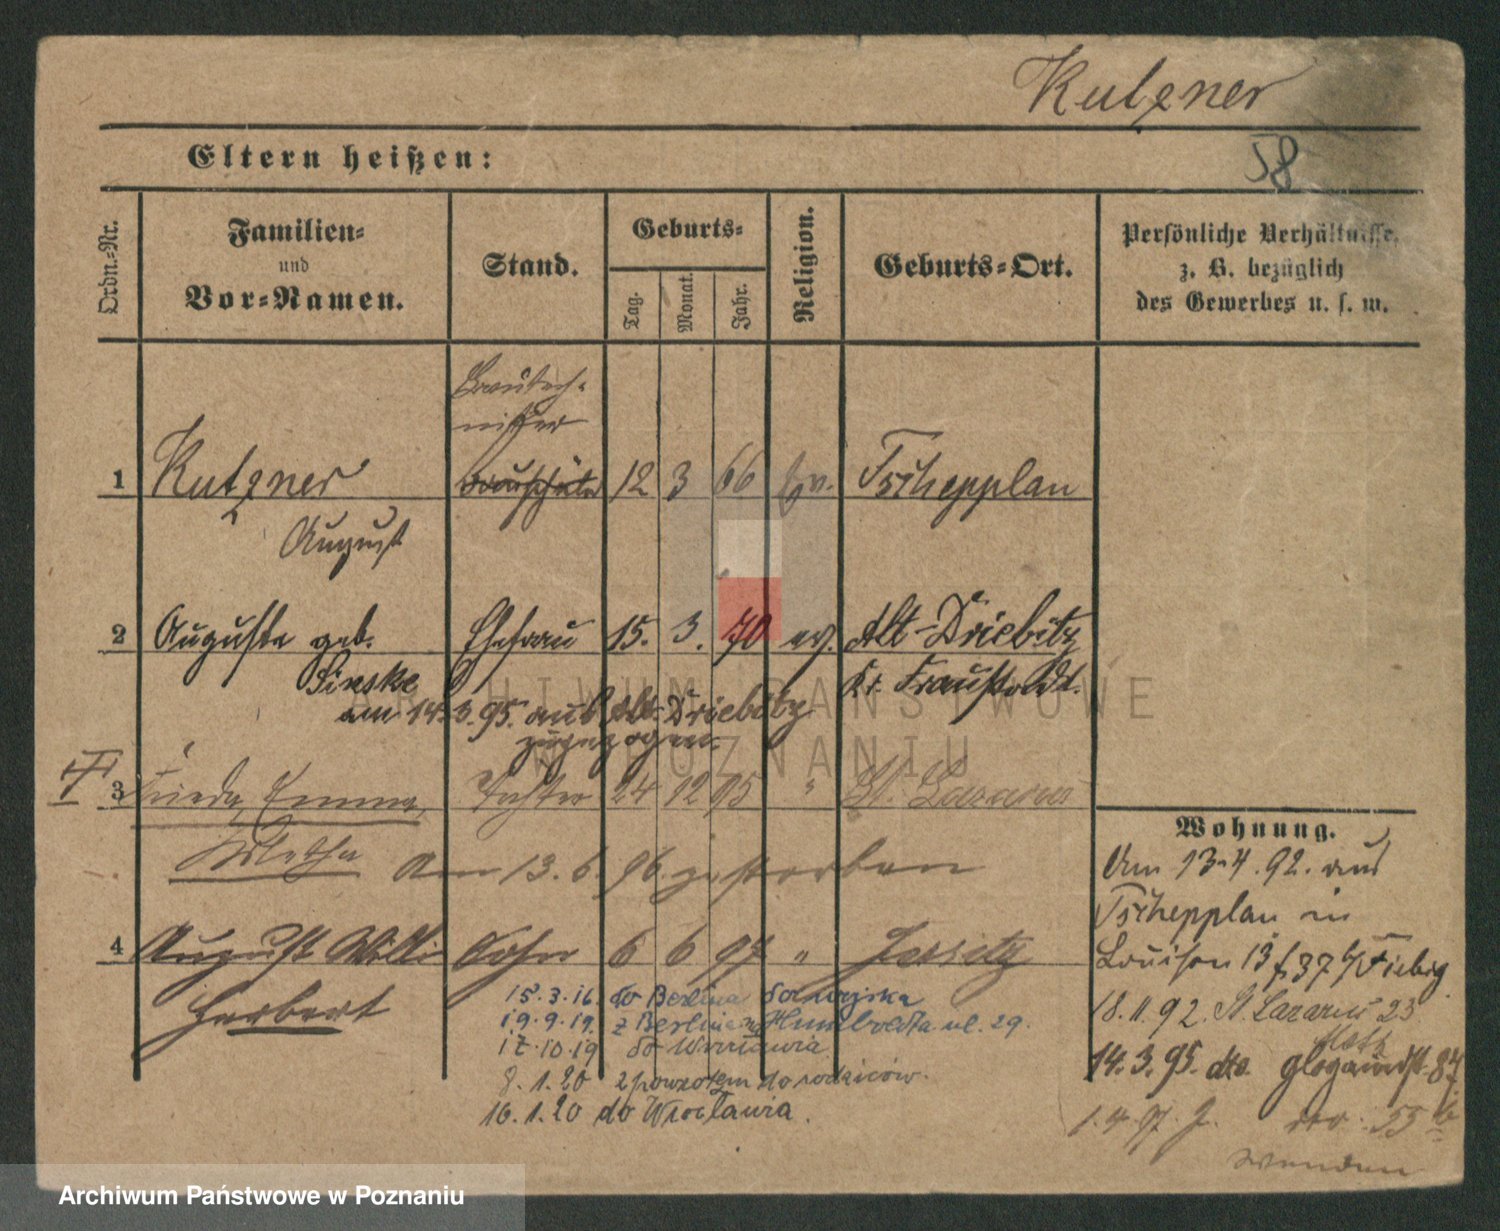 Kutzner
58
Eltern heißen:
Ordn.-Nr.
Familien-
und
Vor-Namen.
Stand.
Geburts-
Tag.
Monat.
Jahr.
Religion.
Geburts-Ort.
Persönliche Verhältnisse,
z. B. bezüglich
des Gewerbes u. s. w.
Bautech-
niker
1 Kutzner 12 3 66 Ev. Tschepplan
August
2 Auguste geb. Ehefrau 15. 3. 70 ev. Alt-Driebitz
Sinske Kr. Fraustadt.
am 14.3.95. aus Alt-Driebitz
zugezogen.
3 Frieda, Emma, Tochter 24 12 95 " St. Lazarus
Martha am 13.6.96. gestorben
4 August Willi Sohn 6 6 97 " Jersitz
Herbert
15.3.16. do Berlina do wojska
19.9.19. z Berlina Humboldta ul. 29.
17.10.19 do Wrocławia
8.1.20 z powrotem do rodziców.
16.1.20 do Wrocławia.
Wohnung.
Am 13.4.92. aus
Tschepplan in
Louisen 13 f. 37 b/Fiebig
18.11.92. St Lazarus 23
14.3.95. dto. Glogauerst. 87
1.4.97. J. 55
wenden
ARCHIWUM PAŃSTWOWE
W POZNANIU
Archiwum Państwowe w Poznaniu